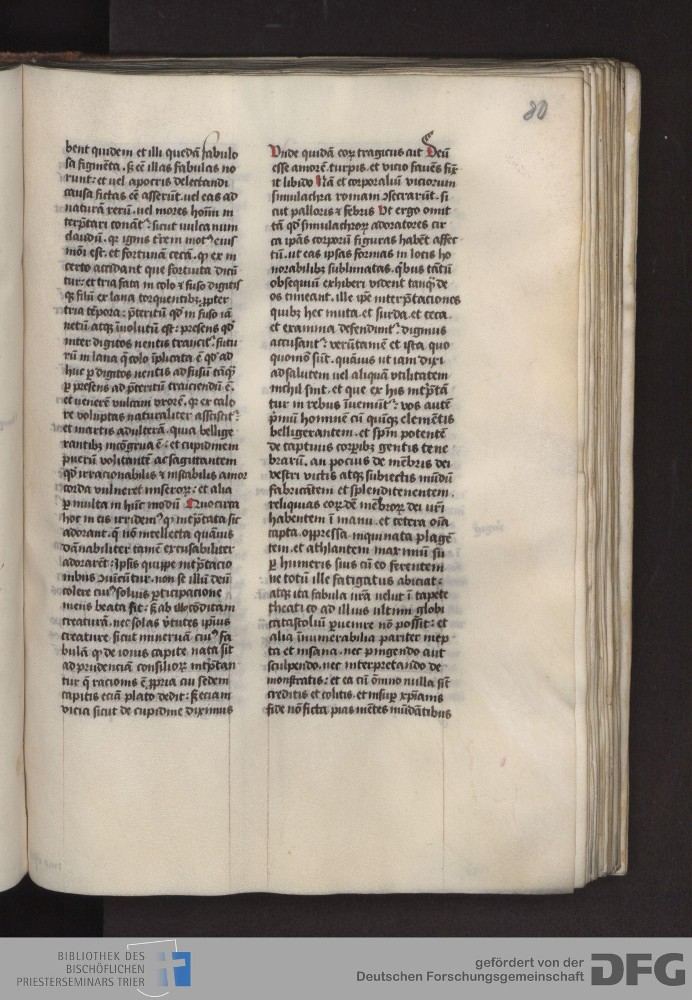 80
bent quidem et illi quedā fabulo
sa figmēta. s; eē illas fabulas no
runt: et uel a poetis delectandi
causa fictas eē asserūt. uel eas ad
naturā rerū. uel mores hoīm in
terp̄tari conāt᷑: sicut uulcanum
claudū. qꝛ ignis t̄rem mot᷒ eius
mōi est. et fortunā cecā. qꝛ ex in
certo accidant que fortuita dicū
tur: et tria fata in colo ⁊ fuso digitiſ
qꝫ filū ex lana torquentibꝫ. ꝓpter
tria tēpora: p̄teritū qd̄ in fuso iā
netū atqꝫ inuolutū est: presens qd̄
inter digitos nentis traicit᷑. futu
rū in lana q̄ colo īplicata ē qd̄ ad
huc ꝑ digitos nentis ad fusū tāq̄
ꝑ presens ad p̄teritū traiciendū ē.
et uenerē uulcani vxorē. qꝛ ex calo
re voluptas naturaliter
et martis adulterā. quia bellige
rantibꝫ incōgrua ē: et cupidinem
puerū volitantē ac sagittantem
qd̄ irracionabilis ⁊ instabilis amor
corda vulneret miseroꝝ: et alia
ꝑ multa in hūc modū Quocirca
hoc in eis irridem᷒ qꝛ int̄p̄tata sic
adorant. q̄ nō intellecta quāuis
dānabiliter tamē excusabiliter
adorarēt: Ipsis quippe int̄p̄tacio
nibus ꝯuīcūtur. non se illū deū
colere cui᷒ solius ꝑticipatione
mens beata fit: s; ab illo cōditam
creaturā. nec solas v̄tutes ip̄ius
creature sicut mineruā cui᷒ fa
bulā qꝛ de iouis capite nata sit
ad prudenciā consilioꝝ int̄p̄tan
tur q̄ racionis ē ꝓpria cui sedem
capitis eciā plato dedit: s; eciam
vicia sicut de cupidine diximus
Vnde quidā eoꝝ tragicus ait Deū
esse amorē. turpis. et vicio fauēs fīx
it libido Nā et corporaliū viciorum
simulachra romani ꝯsecrarūt. si
cut palloris ⁊ febris Vt ergo omit
tā qd̄ simulachroꝝ adoratores cir
ca ip̄as corporū figuras habēt affec
tū. ut eas ipsas formas in locis ho
norabilibꝫ sublimatas. qbꝫ tātū
obsequiū exhiberi vident tanqꝫ de
os timeant. ille ip̄e int̄rp̄tationes
quibꝫ hec muta. et surda. et ceca.
et exanima defendūnt᷑: dignius
accusant᷑: verūtamē et ista quo
quomō sūt. quāuis ut iam dixi
ad salutem uel aliquā vtilitatem
nichil sint. et que ex his int̄p̄tā
tur in rebus īueniūt᷑: vos autē
p̄mū hominē cū quīqꝫ elemētis
belligerantem. et sp̄m potentē
de captiuis corꝑibꝫ gentis tene
brarū. an pocius de mēbris dei
vestri victis atqꝫ subiectis mūdū
fabricātem et splenditenentem.
reliquias eoꝝdē mēbroꝝ dei urī
habentem ī manu. et cetera oīa
capta. oppressa. inquinata plagē
tem. et athlantem maximū su
ꝑ humeris suis cū eo ferentem
ne totū ille fatigatus abiciat:
atqꝫ ita fabula urā uelut ī tapete
theatico ad illius ultimi globi
catastoliū ꝑuenire nō possit: et
alia īnumerabilia pariter inep
ta et insana. nec pingendo aut
sculpendo. nec interpretando de
monstratis: et ea cū om̄no nulla sūt
creditis et colitis. et insuꝑ xp̄ianis
fide nō ficta pias mētes mūdātibus
BIBLIOTHEK DES
BISCHÖFLICHEN
PRIESTERSEMINARS TRIER
gefördert von der
Deutschen Forschungsgemeinschaft
DFG